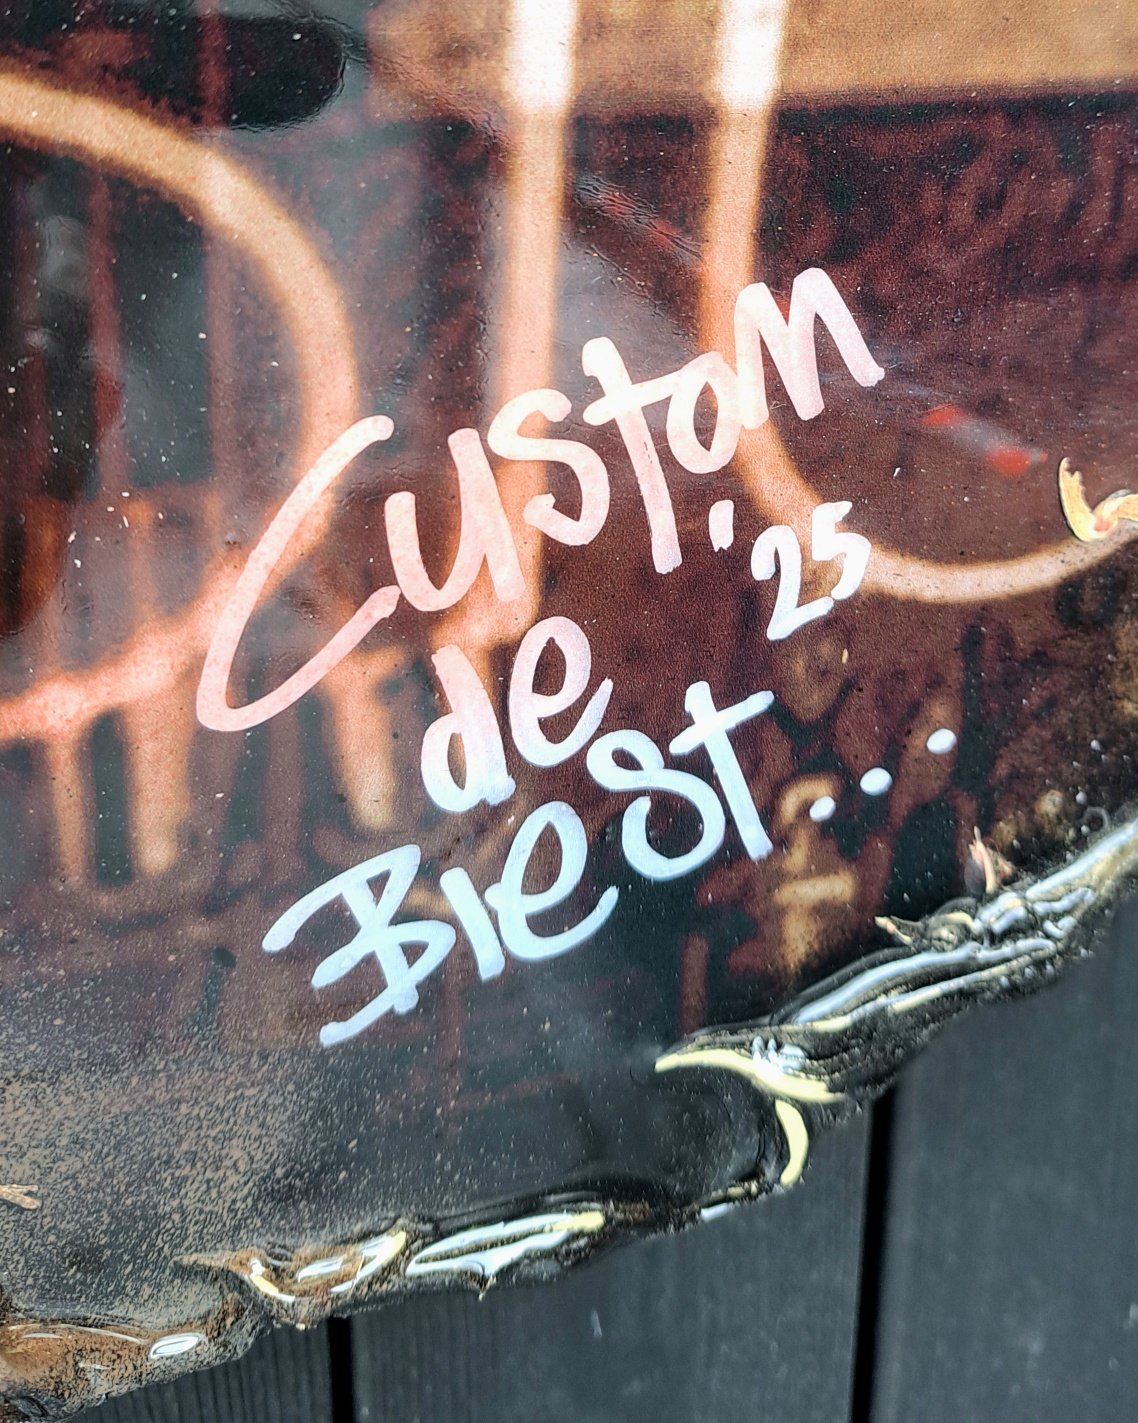 Custom
'25
de
Biest...